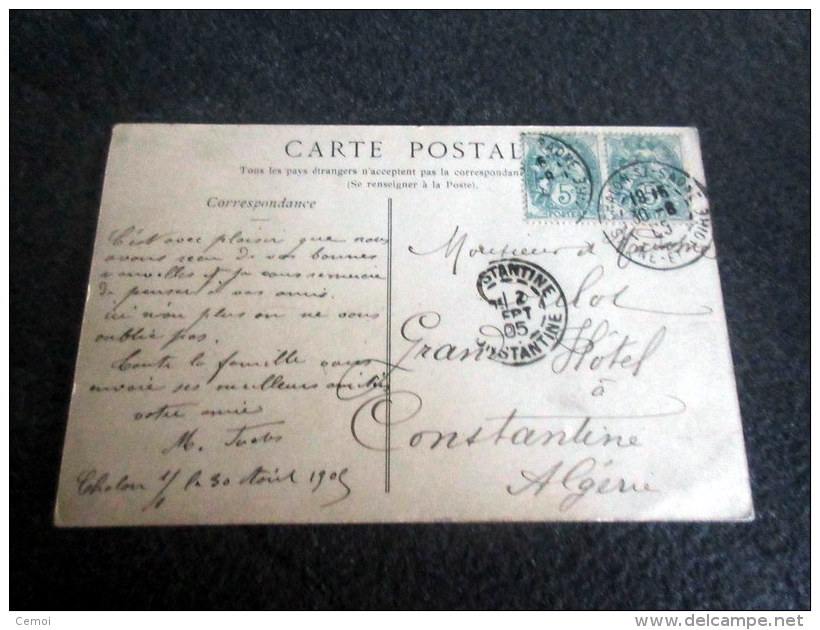 CARTE POSTAL
Tous les pays étrangers n'acceptent pas la correspondan
(Se renseigner à la Poste).
Correspondance
C'est avec plaisir que nous
avons reçu de vos bonnes
nouvelles et je vous remercie
de penser à vos amis.
ici non plus on ne vous
oublie pas.
Toute la famille vous
envoie ses meilleurs amitiés
votre amie
M.
Chalon s/s le 30 Août 1905
Monsieur
Grand Hôtel
à
Constantine
Algérie
5
POSTE
18-15
30
SAONE-ET-LOIRE
CONSTANTINE
2
SEPT
05
CONSTANTINE
Cemoi
www.delcampe.net